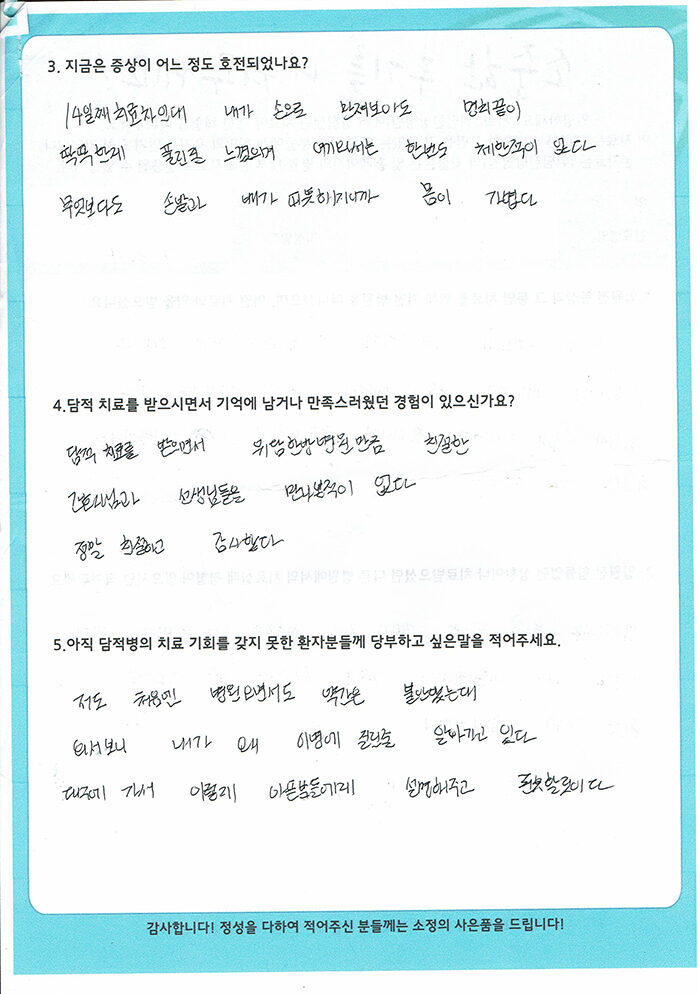 3. 지금은 증상이 어느 정도 호전되었나요?
14일째 치료차인데 내가 손으로 만져보아도 명치끝이
딱딱한게 풀린걸 느꼈으며 여기와서는 한번도 체한적이 없다
무엇보다도 손발과 배가 따뜻해지니까 몸이 가볍다
4.담적 치료를 받으시면서 기억에 남거나 만족스러웠던 경험이 있으신가요?
담적 치료를 받으면서 위담한방병원만큼 친절한
간호사님과 선생님들을 만나본적이 없다
정말 친절하고 감사했다
5.아직 담적병의 치료 기회를 갖지 못한 환자분들께 당부하고 싶은말을 적어주세요.
저도 처음엔 병원오면서도 약간은 불안했는데
와서보니 내가 왜 이병에 걸린줄 알아가고 있다
가서 이렇게 아픈분들에게 설명해주고
감사합니다! 정성을 다하여 적어주신 분들께는 소정의 사은품을 드립니다!